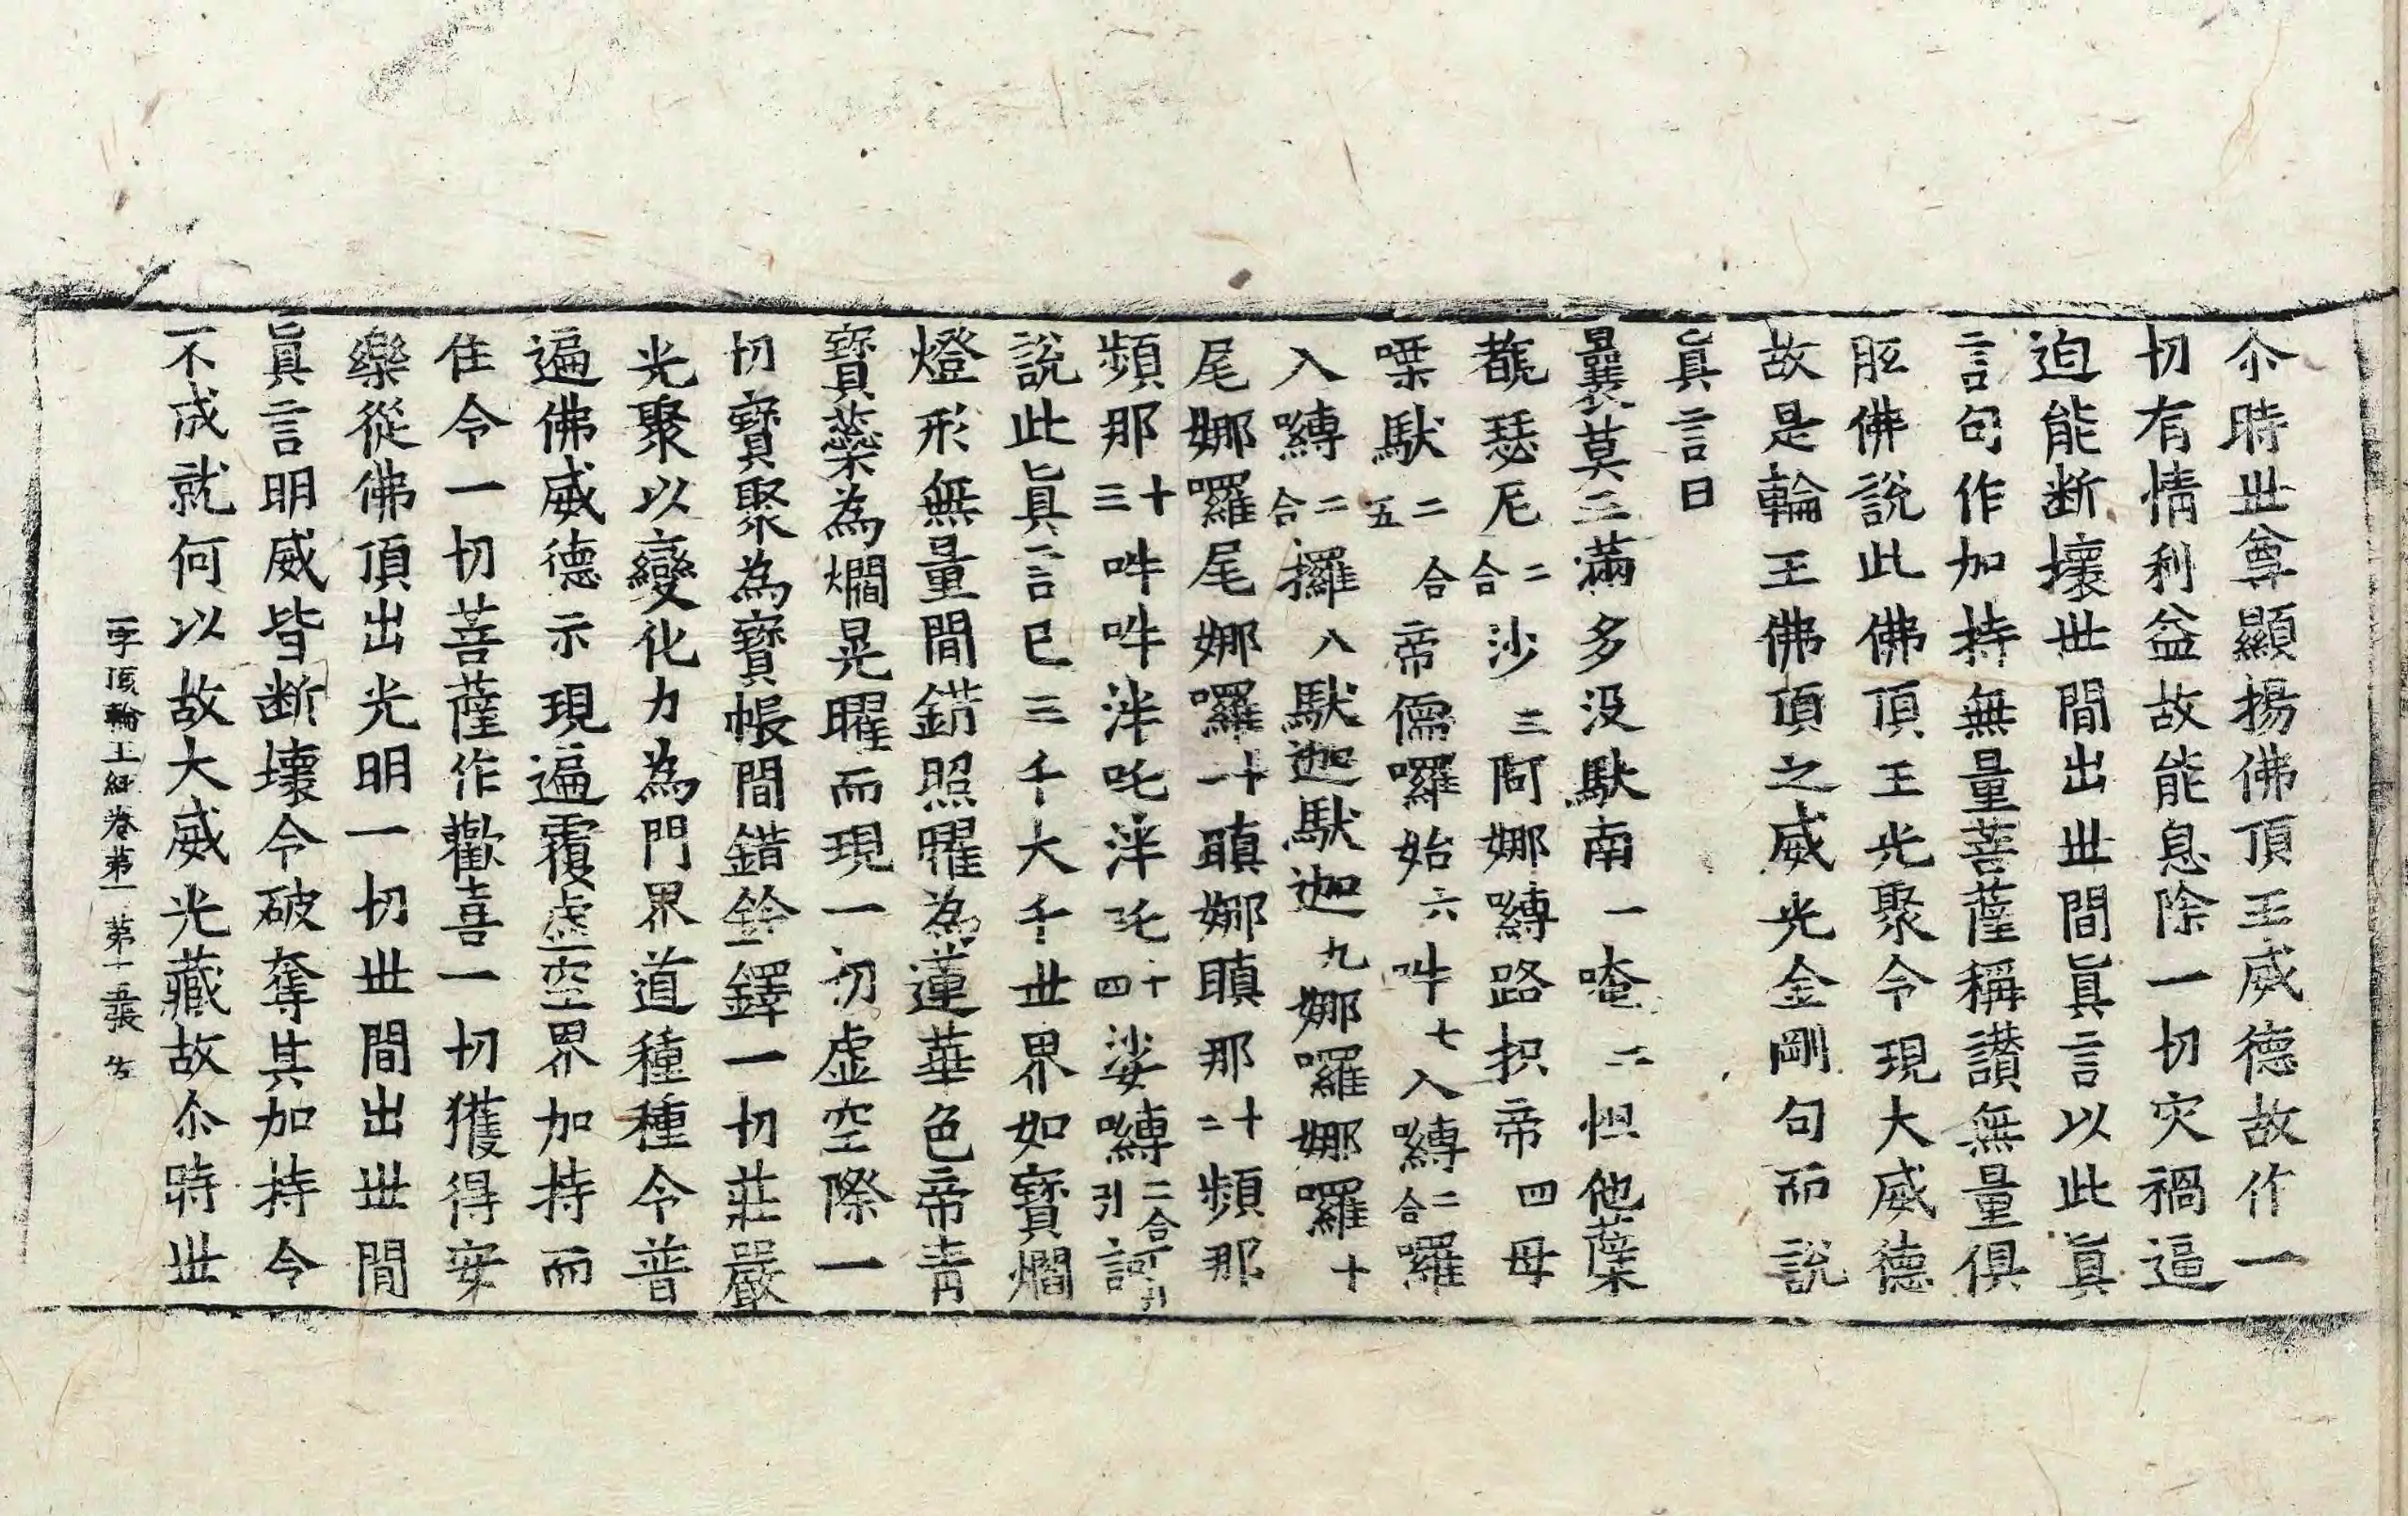 尒時世尊顯揚佛頂王威德故作一
切有情利益故能息除一切灾禍逼
迫能断壞世間出世間眞言以此眞
言句作加持無量菩薩稱讃無量俱
胝佛說此佛頂王光聚令現大威德
故是輪王佛頂之威光金剛句而說
眞言曰
曩莫三滿多没馱南一唵二怛他蘖
覩瑟尼二合沙三阿娜嚩路抧帝四母
㗚馱二合五帝儒囉始六吽七入嚩二合羅
入嚩二合攞八馱迦馱迦九娜囉娜囉十
尾娜囉尾娜囉十一瞋娜瞋那十二頻那
頻那十三吽吽泮吒泮吒十四娑嚩二合引訶引
說此眞言已三千大千世界如寶爓
燈形無量間錯照曜為蓮華色帝青
寶蘂為爓晃曜而現一切虛空際一
切寶聚為寶帳間錯鈴鐸一切莊嚴
光聚以變化力為門界道種種令普
遍佛威德示現遍覆虛空界加持而
住令一切菩薩作歡喜一切獲得安
樂從佛頂出光明一切世間出世間
眞言明威皆断壞令破奪其加持令
不成就何以故大威光藏故尒時世
一字頂輪王經卷第一 第十五張 左